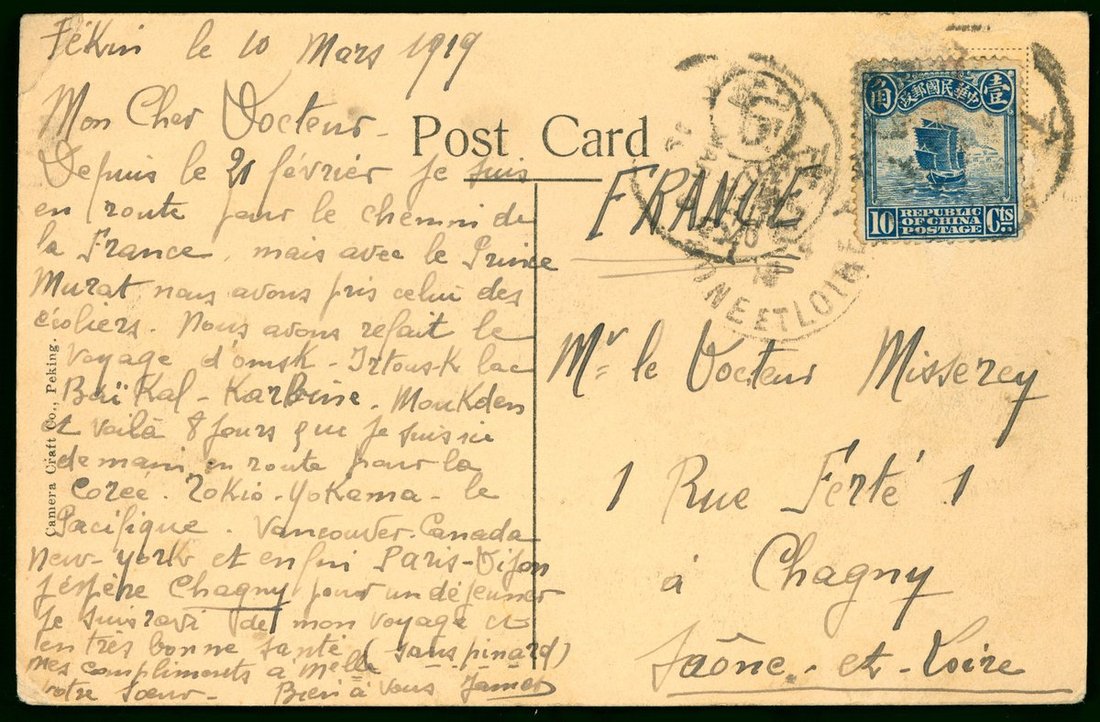 Pékin le 10 Mars 1919
Mon Cher Docteur -
Depuis le 21 février je suis
en route pour le chemin de
la France, mais avec le Prince
Murat nous avons pris celui des
écoliers. Nous avons refait le
voyage d'omsk - Irtousk lac
Baï Kal - Karbine. Moukden
et voilà 8 jours que je suis ici
demain en route pour la
Corée. Tokio - Yokama - le
Pacifique. Vancouver. Canada
New-York et enfin Paris - Dijon
j'éspère Chagny pour un déjeuner
Je suis ravi de mon voyage et
en très bonne santé (sans pinard)
mes compliments à Melle
votre soeur - Bien à vous James
Camera Craft Co., Peking.
Post Card
FRANCE
中華民國郵政
壹
角
10 Cts
REPUBLIC
OF CHINA
POSTAGE
ONE ET LOIRE
Mr le Docteur Misserey
1 Rue Ferté 1
à Chagny
Saône-et-Loire